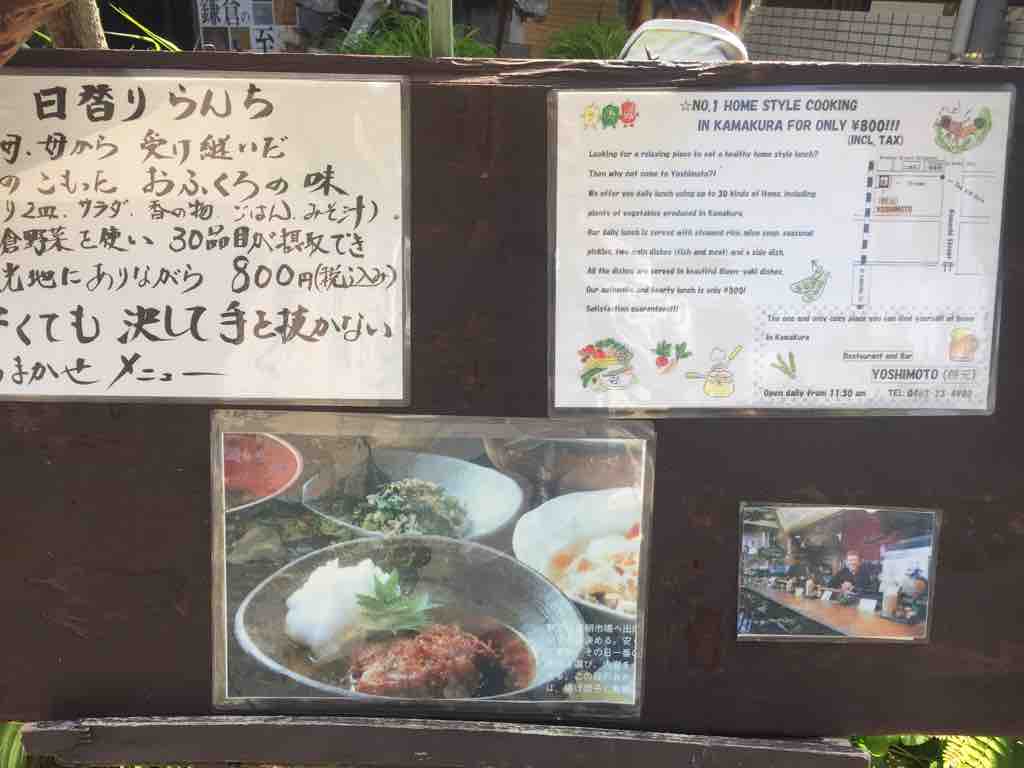 日替りらんち
母から受け継いだ
のこもったおふくろの味
2皿、サラダ、香の物、ごはん、みそ汁).
倉野菜を使い 30品目が摂取でき
光地にありながら 800円(税込み)
くても 決して手を抜かない
まかせメニュー
☆NO.1 HOME STYLE COOKING
IN KAMAKURA FOR ONLY ¥800!!!
(INCL TAX)
Looking for a relaxing place to eat a healthy home style lunch?
Then why not come to Yoshimoto?!
We offer you daily lunch using up to 30 kinds of items, including
plenty of vegetables produced in Kamakura.
Our daily lunch is served with steamed rice, miso soup, seasonal
pickles, two main dishes (fish and meat) and a side dish.
All the dishes are served in beautiful dishes.
Our authentic and hearty lunch is only ¥800!
Satisfaction guaranteed!!
YOSHIMOTO
The one and only cozy place you can find yourself at home
in Kamakura
Restaurant and Bar
YOSHIMOTO
Open daily from 11:30 am
TEL
朝市場へ出
決める。安
その日一番
選び、